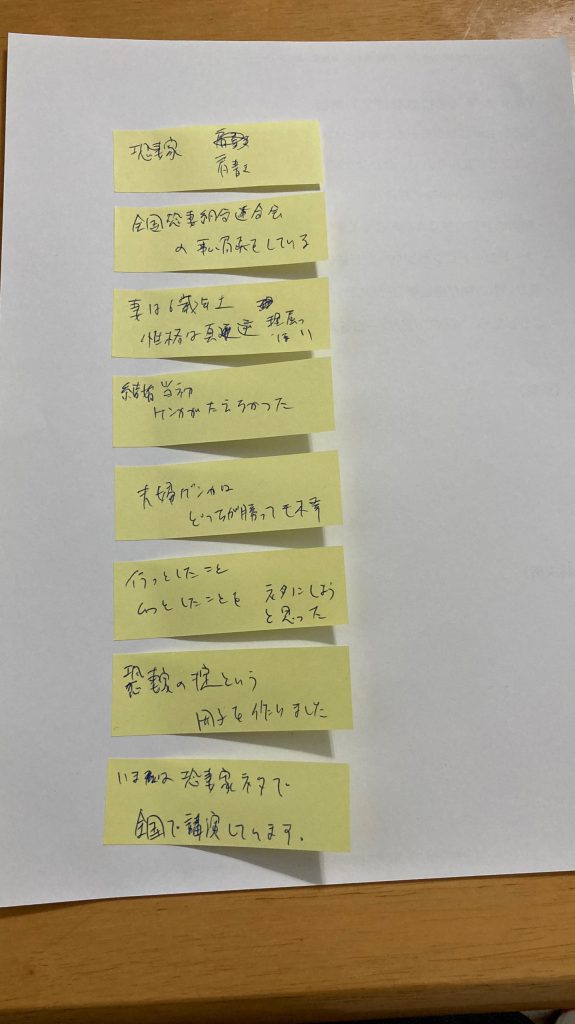 恐妻家
肩書き
全国恐妻組合連合会
の事ム局長をしている
妻は6歳年上
性格は真逆 理屈っ
ぽい
結婚当初
ケンカがたえなかった
夫婦ゲンカは
どっちが勝っても不幸
イラっとしたこと
ムっとしたことを ネタにしよう
と思った
恐妻の掟という
冊子を作りました
いまでは 恐妻家ネタで
全国で講演しています.